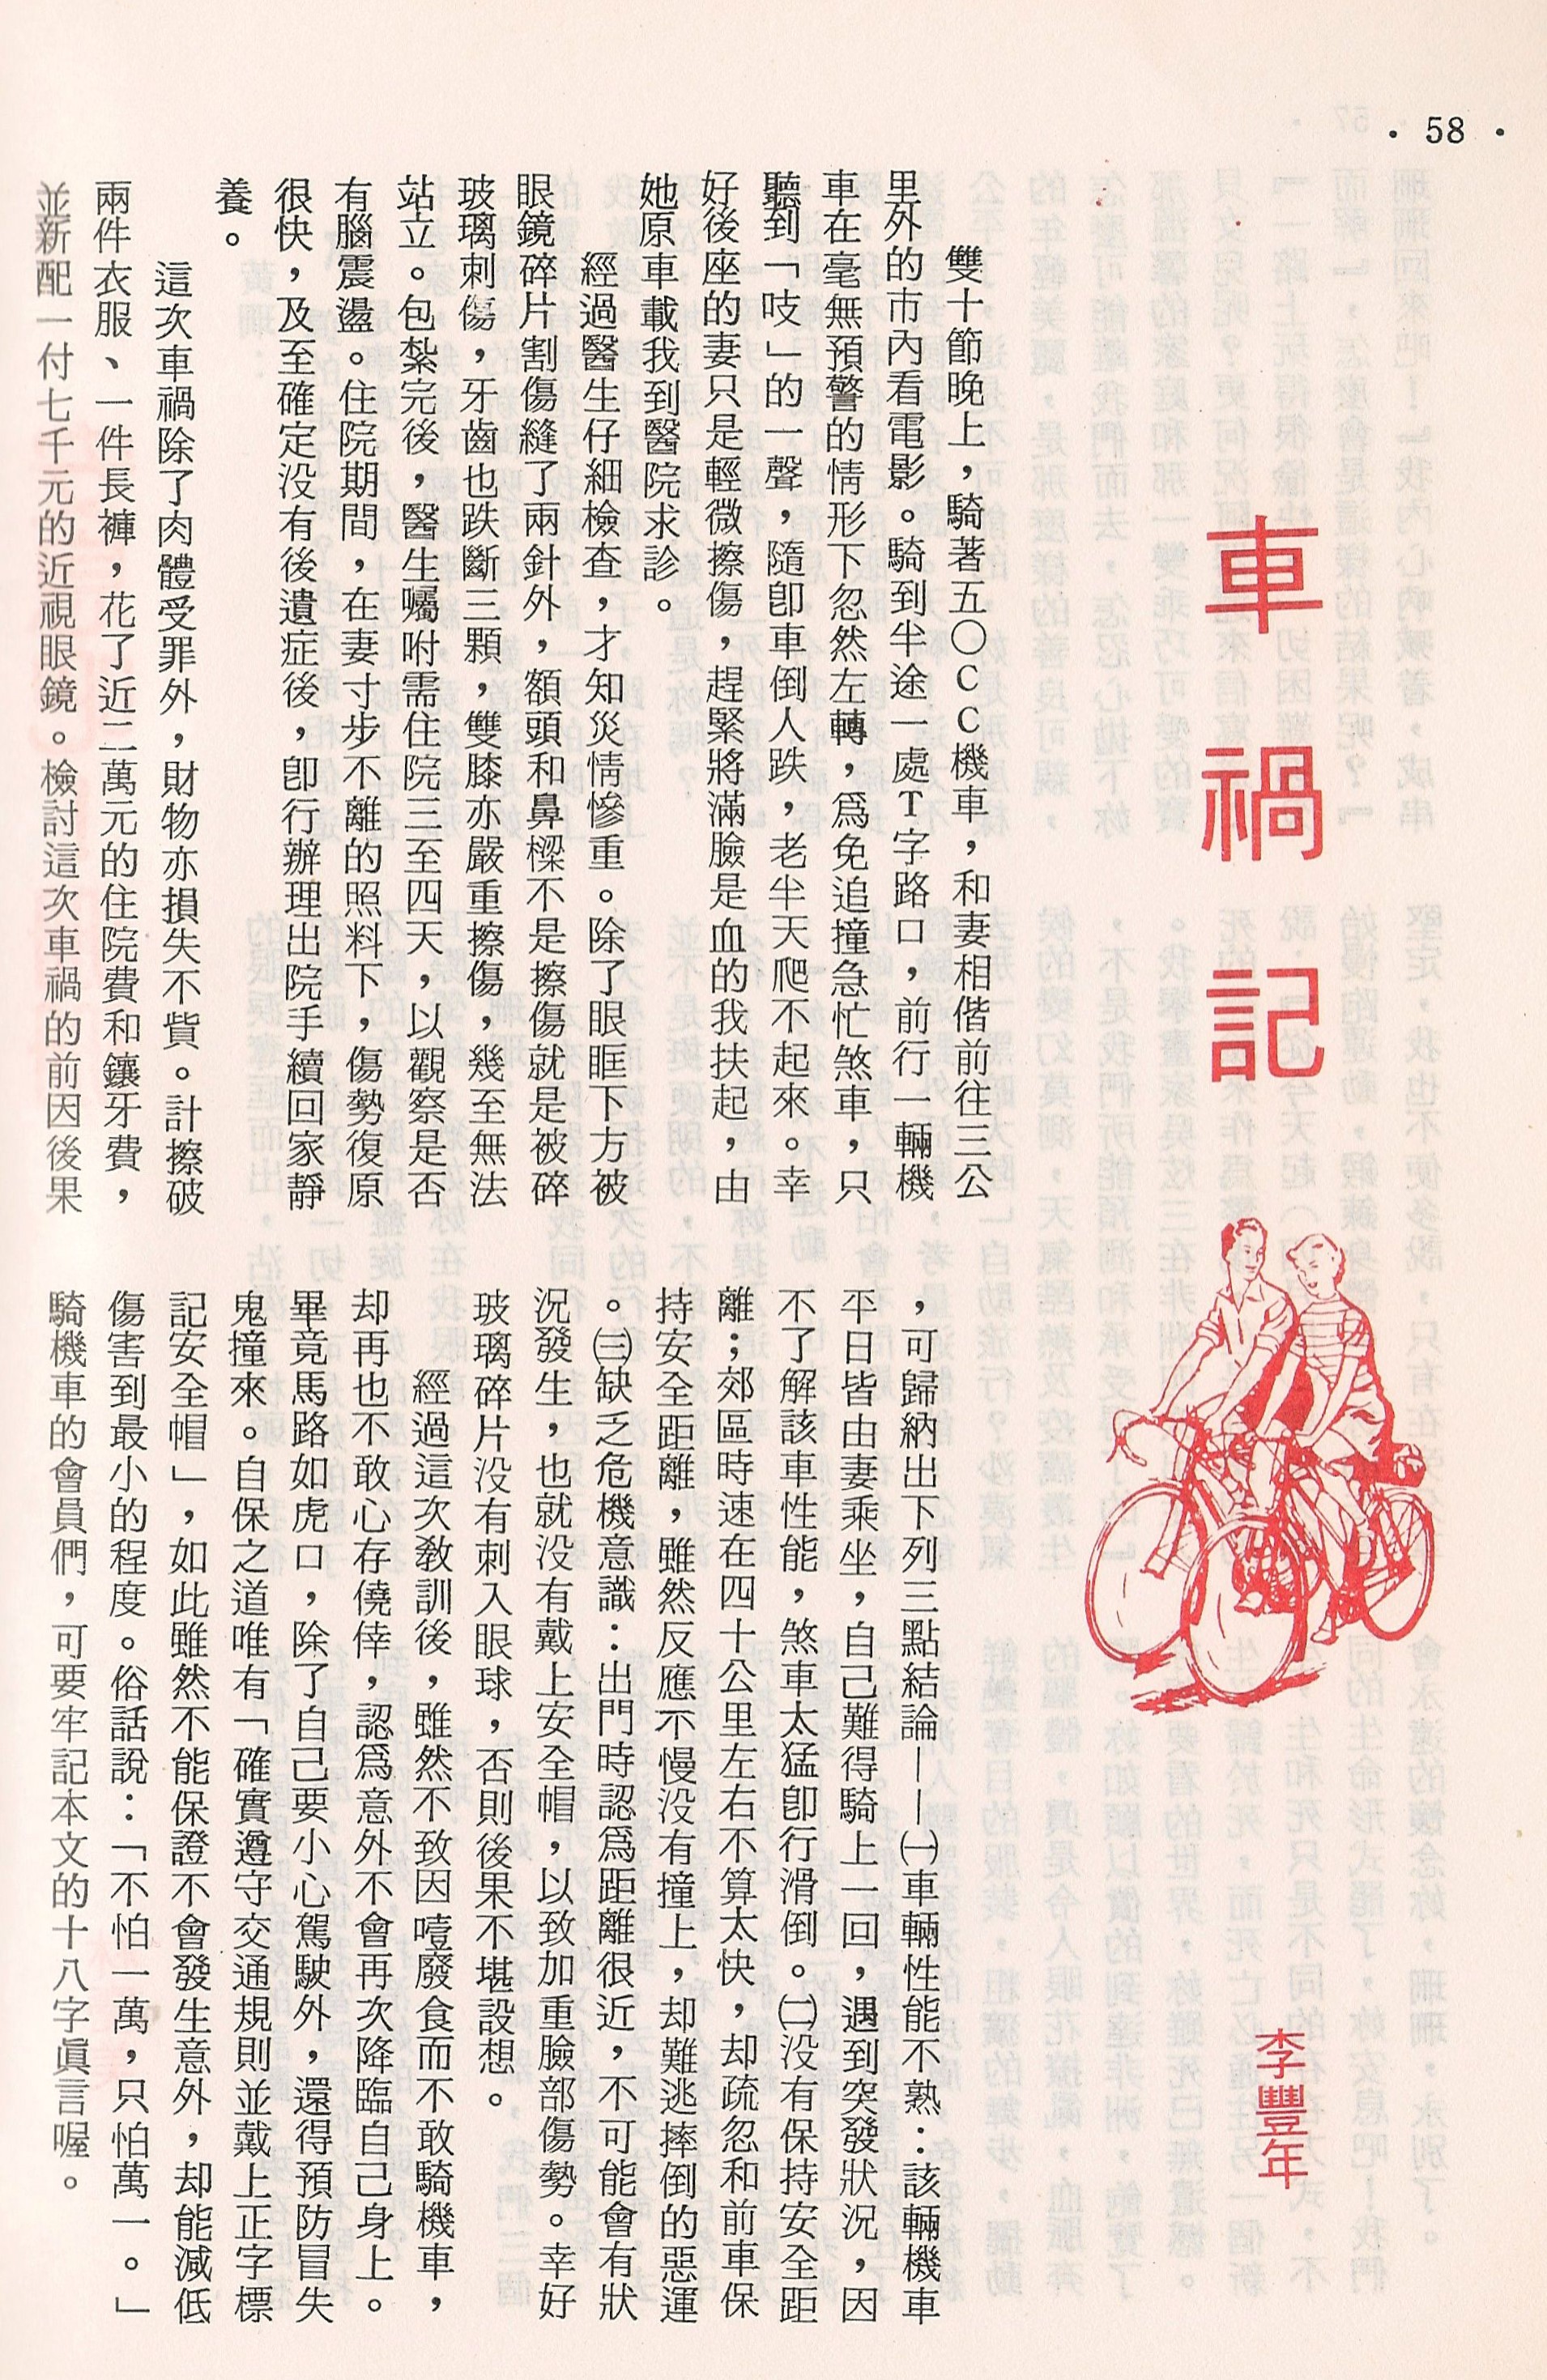 · 58 ·
車禍記
李豐年
雙十節晚上，騎著五〇CC機車，和妻相偕前往三公
里外的市內看電影。騎到半途一處T字路口，前行一輛機
車在毫無預警的情形下忽然左轉，爲免追撞急忙煞車，只
聽到「吱」的一聲，隨卽車倒人跌，老半天爬不起來。幸
好後座的妻只是輕微擦傷，趕緊將滿臉是血的我扶起，由
她原車載我到醫院求診。
經過醫生仔細檢查，才知災情慘重。除了眼眶下方被
眼鏡碎片割傷縫了兩針外，額頭和鼻樑不是擦傷就是被碎
玻璃刺傷，牙齒也跌斷三顆，雙膝亦嚴重擦傷，幾至無法
站立。包紮完後，醫生囑咐需住院三至四天，以觀察是否
有腦震盪。住院期間，在妻寸步不離的照料下，傷勢復原
很快，及至確定没有後遺症後，卽行辦理出院手續回家靜
養。
這次車禍除了肉體受罪外，財物亦損失不貲。計擦破
兩件衣服、一件長褲，花了近二萬元的住院費和鑲牙費，
並新配一付七千元的近視眼鏡。檢討這次車禍的前因後果
，可歸納出下列三點結論——㈠車輛性能不熟：該輛機車
平日皆由妻乘坐，自己難得騎上一回，遇到突發狀況，因
不了解該車性能，煞車太猛卽行滑倒。㈡没有保持安全距
離；郊區時速在四十公里左右不算太快，却疏忽和前車保
持安全距離，雖然反應不慢没有撞上，却難逃摔倒的惡運
。㈢缺乏危機意識：出門時認爲距離很近，不可能會有狀
況發生，也就没有戴上安全帽，以致加重臉部傷勢。幸好
玻璃碎片没有刺入眼球，否則後果不堪設想。
經過這次敎訓後，雖然不致因噎廢食而不敢騎機車，
却再也不敢心存僥倖，認爲意外不會再次降臨自己身上。
畢竟馬路如虎口，除了自己要小心駕駛外，還得預防冒失
鬼撞來。自保之道唯有「確實遵守交通規則並戴上正字標
記安全帽」，如此雖然不能保證不會發生意外，却能減低
傷害到最小的程度。俗話說：「不怕一萬，只怕萬一。」
騎機車的會員們，可要牢記本文的十八字眞言喔。